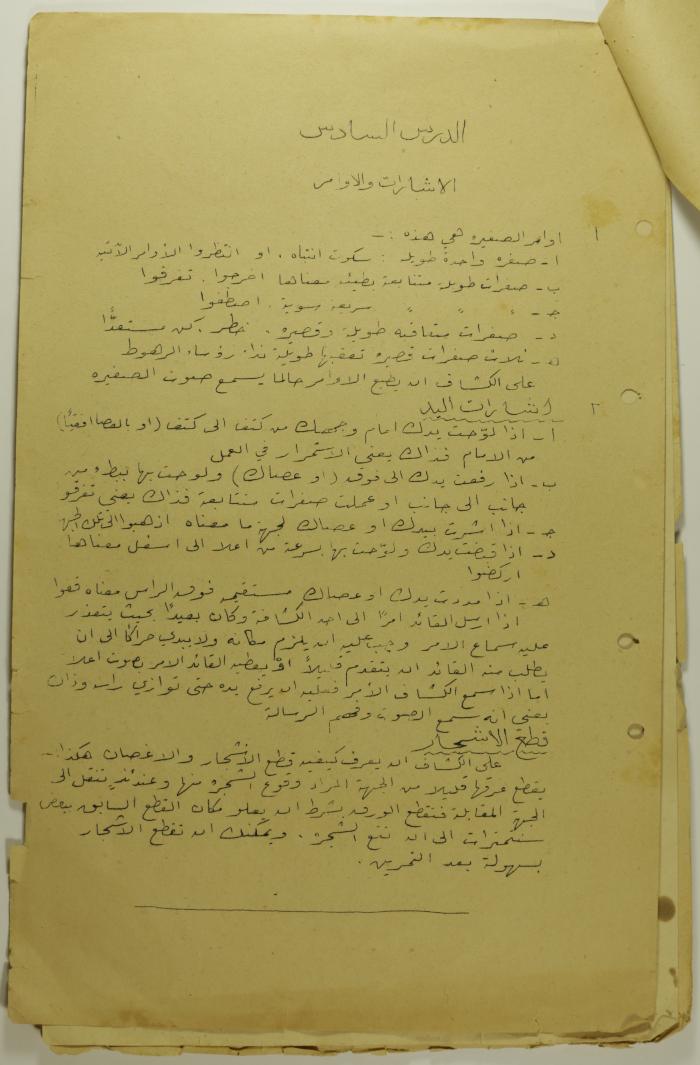 الدرس السادس
الاشارات والاوامر
١ اوامر الصفيره هي هذه :ـ
ا- صفره واحدة طويلة : سكوت انتباه ، او انتظروا الأوامر الآتيه
ب- صفرات طويلة متتابعة بطيئه معناها اخرجوا . تفرقوا
جـ - " " " سريعة سوية . اصطفوا
د- صفرات متعاقبه طويلة وقصيره . خطر . كن مستعدًّا
هـ- ثلاث صفرات قصيره تعقبها طويلة نداء رؤساء الرهوط
على الكشاف ان يطيع الاوامر حالما يسمع صوت الصفيره
٢ اشارات اليد
أ- اذا لوّحت يدك امام وجهك من كتف الى كتف (او بالعصا افقيًا)
من الامام فذاك يعني الاستمرار في العمل
ب- اذا رفعت يدك الى فوق (او عصاك) ولوحت بها ببطء من
جانب الى جانب او عملت صفرات متتابعة فذاك يعني تفرقو
جـ- اذا اشرت بيدك او عصاك لجهة ما معناه اذهبوا الى تلك الجهة
د- اذا قبضت يدك ولوّحت بها بسرعة من اعلا الى اسفل معناها
اركضوا
هـ- اذا مددت يدك او عصاك مستقيمه فوق الراس معناه قفوا
اذا ارسل القائد امرًا الى احد الكشافة وكان بعيدًا بحيث يتعذر
عليه سماع الامر وجب عليه ان يلزم مكانه ولا يبدي حراكًا الى ان
يطلب منه القائد ان يتقدم قليلاً او يعطيه القائد الامر بصوت اعلا
اما اذا سمع الكشاف الأمر فعليه ان يرفع يده حتى توازي راسه وذاك
يعني انه سمع الصوت وفهم الرسالة
قطع الاشجار
على الكشاف ان يعرف كيفيه قطع الأشجار والاغصان هكذا ـ
يقطع عرقها قليلا من الجهة المراد وقوع الشجره منها وعندئذ ينتقل الى
الجهة المقابلة فتقطع بشرط ان يعلو مكان القطع السابق ببعض
سنتمترات الى ان تقع الشجره . ويمكنك ان تقطع الأشجار
بسهولة بعد التمرين .